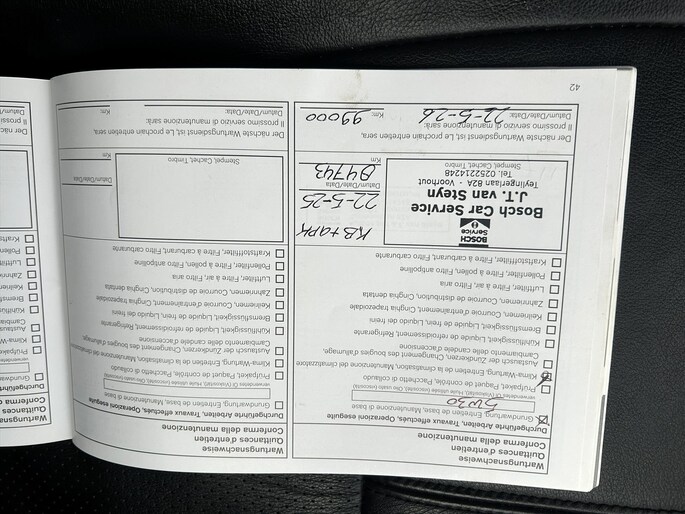 Wartungsnachweise
Quittances d'entretien
Conferma della manutenzione
Durchgeführte Arbeiten, Travaux effectués, Operazioni eseguite
Grundwartung, Entretien de base, Manutenzione di base
5W30
Prüfpaket, Paquet de contrôle, Pacchetto di collaudo
Klima-Wartung, Entretien de la climatisation, Manutenzione del climatizzatore
Austausch der Zündkerzen, Changement des bougies d'allumage,
Cambiamento delle candele d'accensione
Kühlflüssigkeit, Liquide de refroidissement, Refrigerante
Bremsflüssigkeit, Liquide de frein, Liquido dei freni
Keilriemen, Courroie d'entraînement, Cinghia trapezoidale
Zahnriemen, Courroie de distribution, Cinghia dentata
Luftfilter, Filtre à air, Filtro aria
Pollenfilter, Filtre à pollen, Filtro antipolline
Kraftstofffilter, Filtre à carburant, Filtro carburante
BOSCH
Service
Bosch Car Service
J.T. van Steyn
Teylingerlaan 82A - Voorhout
Tel. 0252214248
Stempel, Cachet, Timbro
KB + APK
22-5-25
Datum/Date/Data
84743
Km
Der nächste Wartungsdienst ist, Le prochain entretien sera,
Il prossimo servizio di manutenzione sarà:
22-5-26
Datum/Date/Data:
99000
Km:
42
Wartungsnachweise
Quittances d'entretien
Conferma della manutenzione
Durchgeführte Arbeiten, Travaux effectués, Operazioni eseguite
Grundwartung, Entretien de base, Manutenzione di base
Prüfpaket, Paquet de contrôle, Pacchetto di collaudo
Klima-Wartung, Entretien de la climatisation, Manutenzione del
Austausch der Zündkerzen, Changement des bougies d'allumage,
Cambiamento delle candele d'accensione
Kühlflüssigkeit, Liquide de refroidissement, Refrigerante
Bremsflüssigkeit, Liquide de frein, Liquido dei freni
Keilriemen, Courroie d'entraînement, Cinghia trapezoidale
Zahnriemen, Courroie de distribution, Cinghia dentata
Luftfilter, Filtre à air, Filtro aria
Pollenfilter, Filtre à pollen, Filtro antipolline
Kraftstofffilter, Filtre à carburant, Filtro carburante
Stempel, Cachet, Timbro
Datum/Date/Data
Km
Der nächste Wartungsdienst ist, Le prochain entretien sera,
Il prossimo servizio di manutenzione sarà:
Datum/Date/Data:
Km:
Wartungsnachweise
Quittances d'entretien
Conferma della
Durchgeführte
Grundwartung
Prüfpaket
Klima-Wa
Austausch
Cambiam
Kühlflüss
Bremsflüs
Keilriemen
Zahnriem
Luftfilter
Pollenf
Kraftsto
Der nächste
Il prossimo
Datum/Date